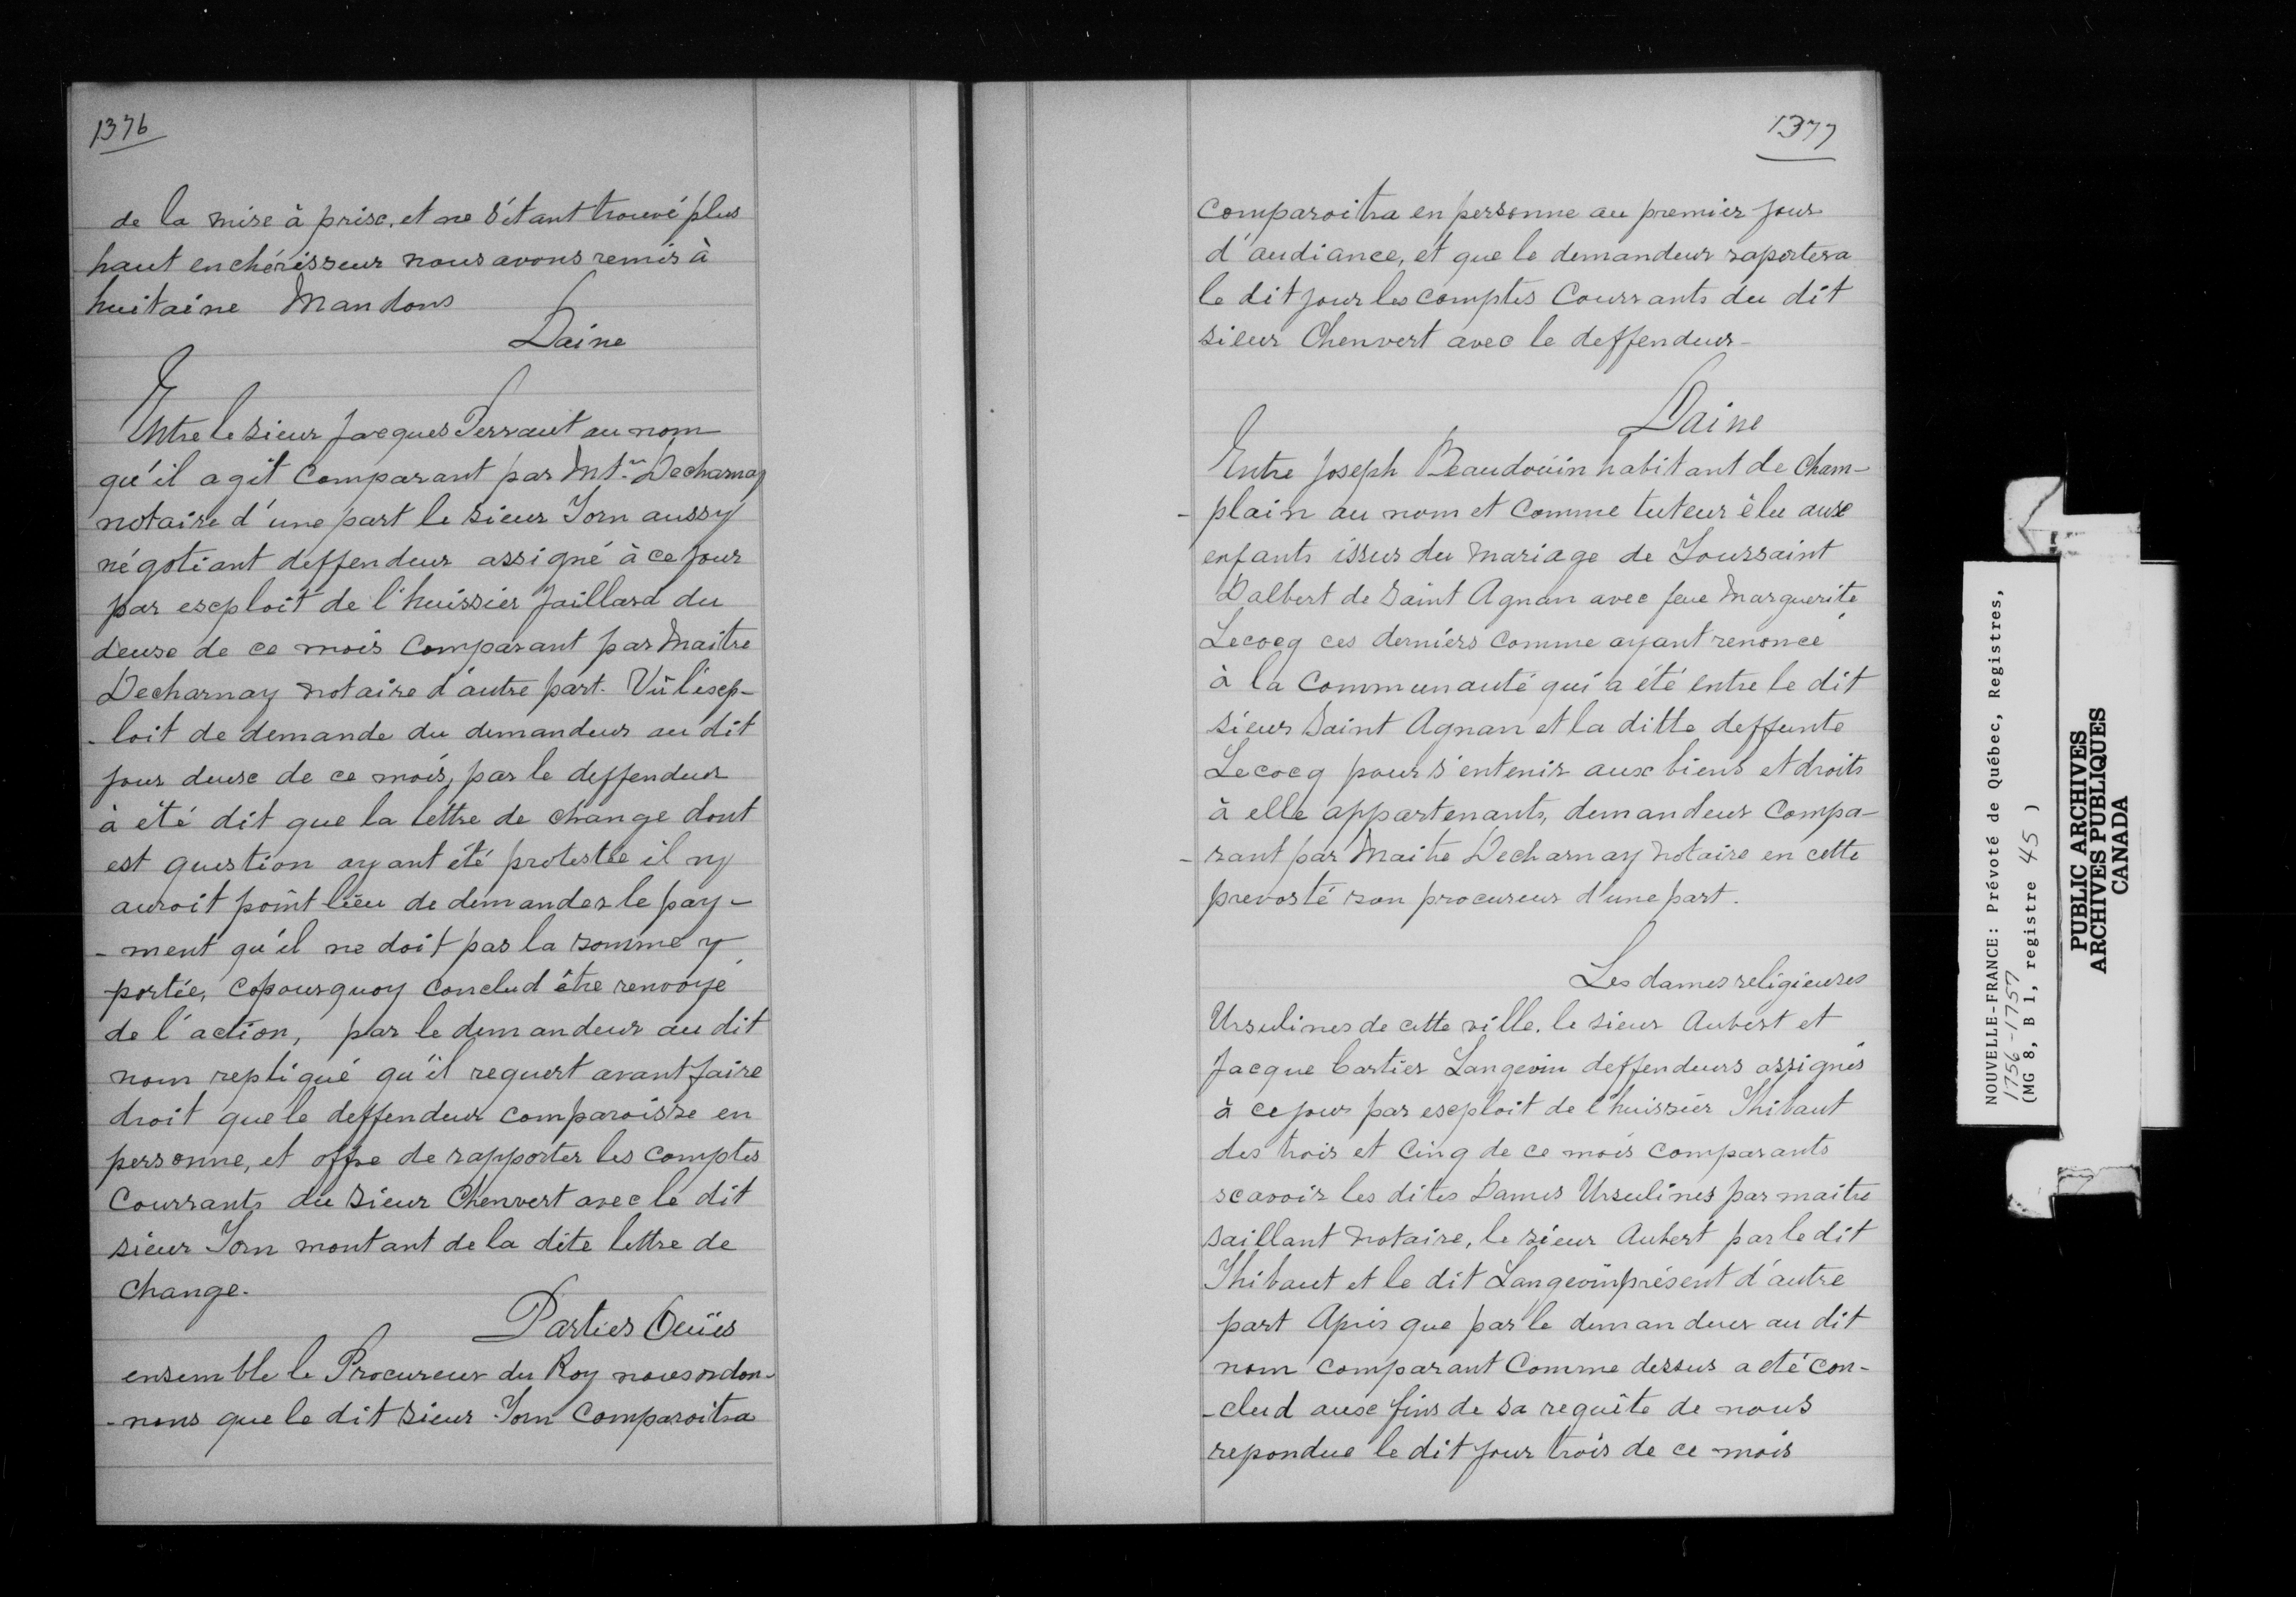 1376
de la mise à prise, et ne s'étant trouvé plus
haut enchérisseur nous avons remis à
huitaine Mandons
Daine
Entre le sieur Jacques Perraut au nom
qu'il agit comparant par Mtre Decharnay
notaire d'une part le sieur Jorn aussy
négotiant deffendeur assigné à ce jour
par exploit de l'huissier Jaillard du
deux de ce mois comparant par Maitre
Decharnay notaire d'autre part. Vû l'exp-
-loit de demande du demandeur au dit
jour deux de ce mois, par le deffendeur
à été dit que la lettre de change dont
est question ayant été protestée il ny
auroit point lieu de demander le pay-
-ment qu'il ne doit pas la somme y
portée, copourquoy conclud être renvoyé
de l'action, par le demandeur au dit
nom repliqué qu'il requert avant faire
droit que le deffendeur comparoisse en
personne, et offre de rapporter les comptes
Courrants du sieur Chenvert avec le dit
sieur Jorn montant de la dite lettre de
change.
Parties Ouües
ensemble le Procureur du Roy nous ordon-
-nons que le dit sieur Jorn Comparoitra
1377
comparoitra en personne au premier jour
d'audiance, et que le demandeur raportera
le dit jour les comptes Courrants du dit
sieur Chenvert avec le deffendeur-
Daine
Entre Joseph Beaudoüin habitant de Cham-
-plain au nom et comme tuteur élu aux
enfants issus du mariage de Toussaint
Dalbert de Saint Agnan avec feue Marguerite
Lecocq ces derniers comme ayant renoncé
à la Communauté qui a été entre le dit
sieur Saint Agnan et la ditte deffunte
Lecocq pour s'entenir aux biens et droits
à elle appartenants, demandeur compa-
-rant par Maitre Decharnay Notaire en cette
prevosté son procureur d'une part.
Les dames religieuses
Ursulines de cette ville, le sieur Aubert et
Jacque Cartier Langevin deffendeurs assignés
à ce jour par exploit de l'huissier Thibaut
des trois et cinq de ce mois comparants
scavoir les dites Dames Ursulines par maitre
saillant Notaire, le sieur Aubert par le dit
Thibaut et le dit Langevin présent d'autre
part Après que par le demandeur au dit
nom comparant Comme dessus a été con-
-clud aux fins de sa requête de nous
repondue le dit jour trois de ce mois
NOUVELLE-FRANCE: Prévoté de Québec, Registres,
1756-1757
(MG 8, B 1, registre 45 )
PUBLIC ARCHIVES
ARCHIVES PUBLIQUES
CANADA